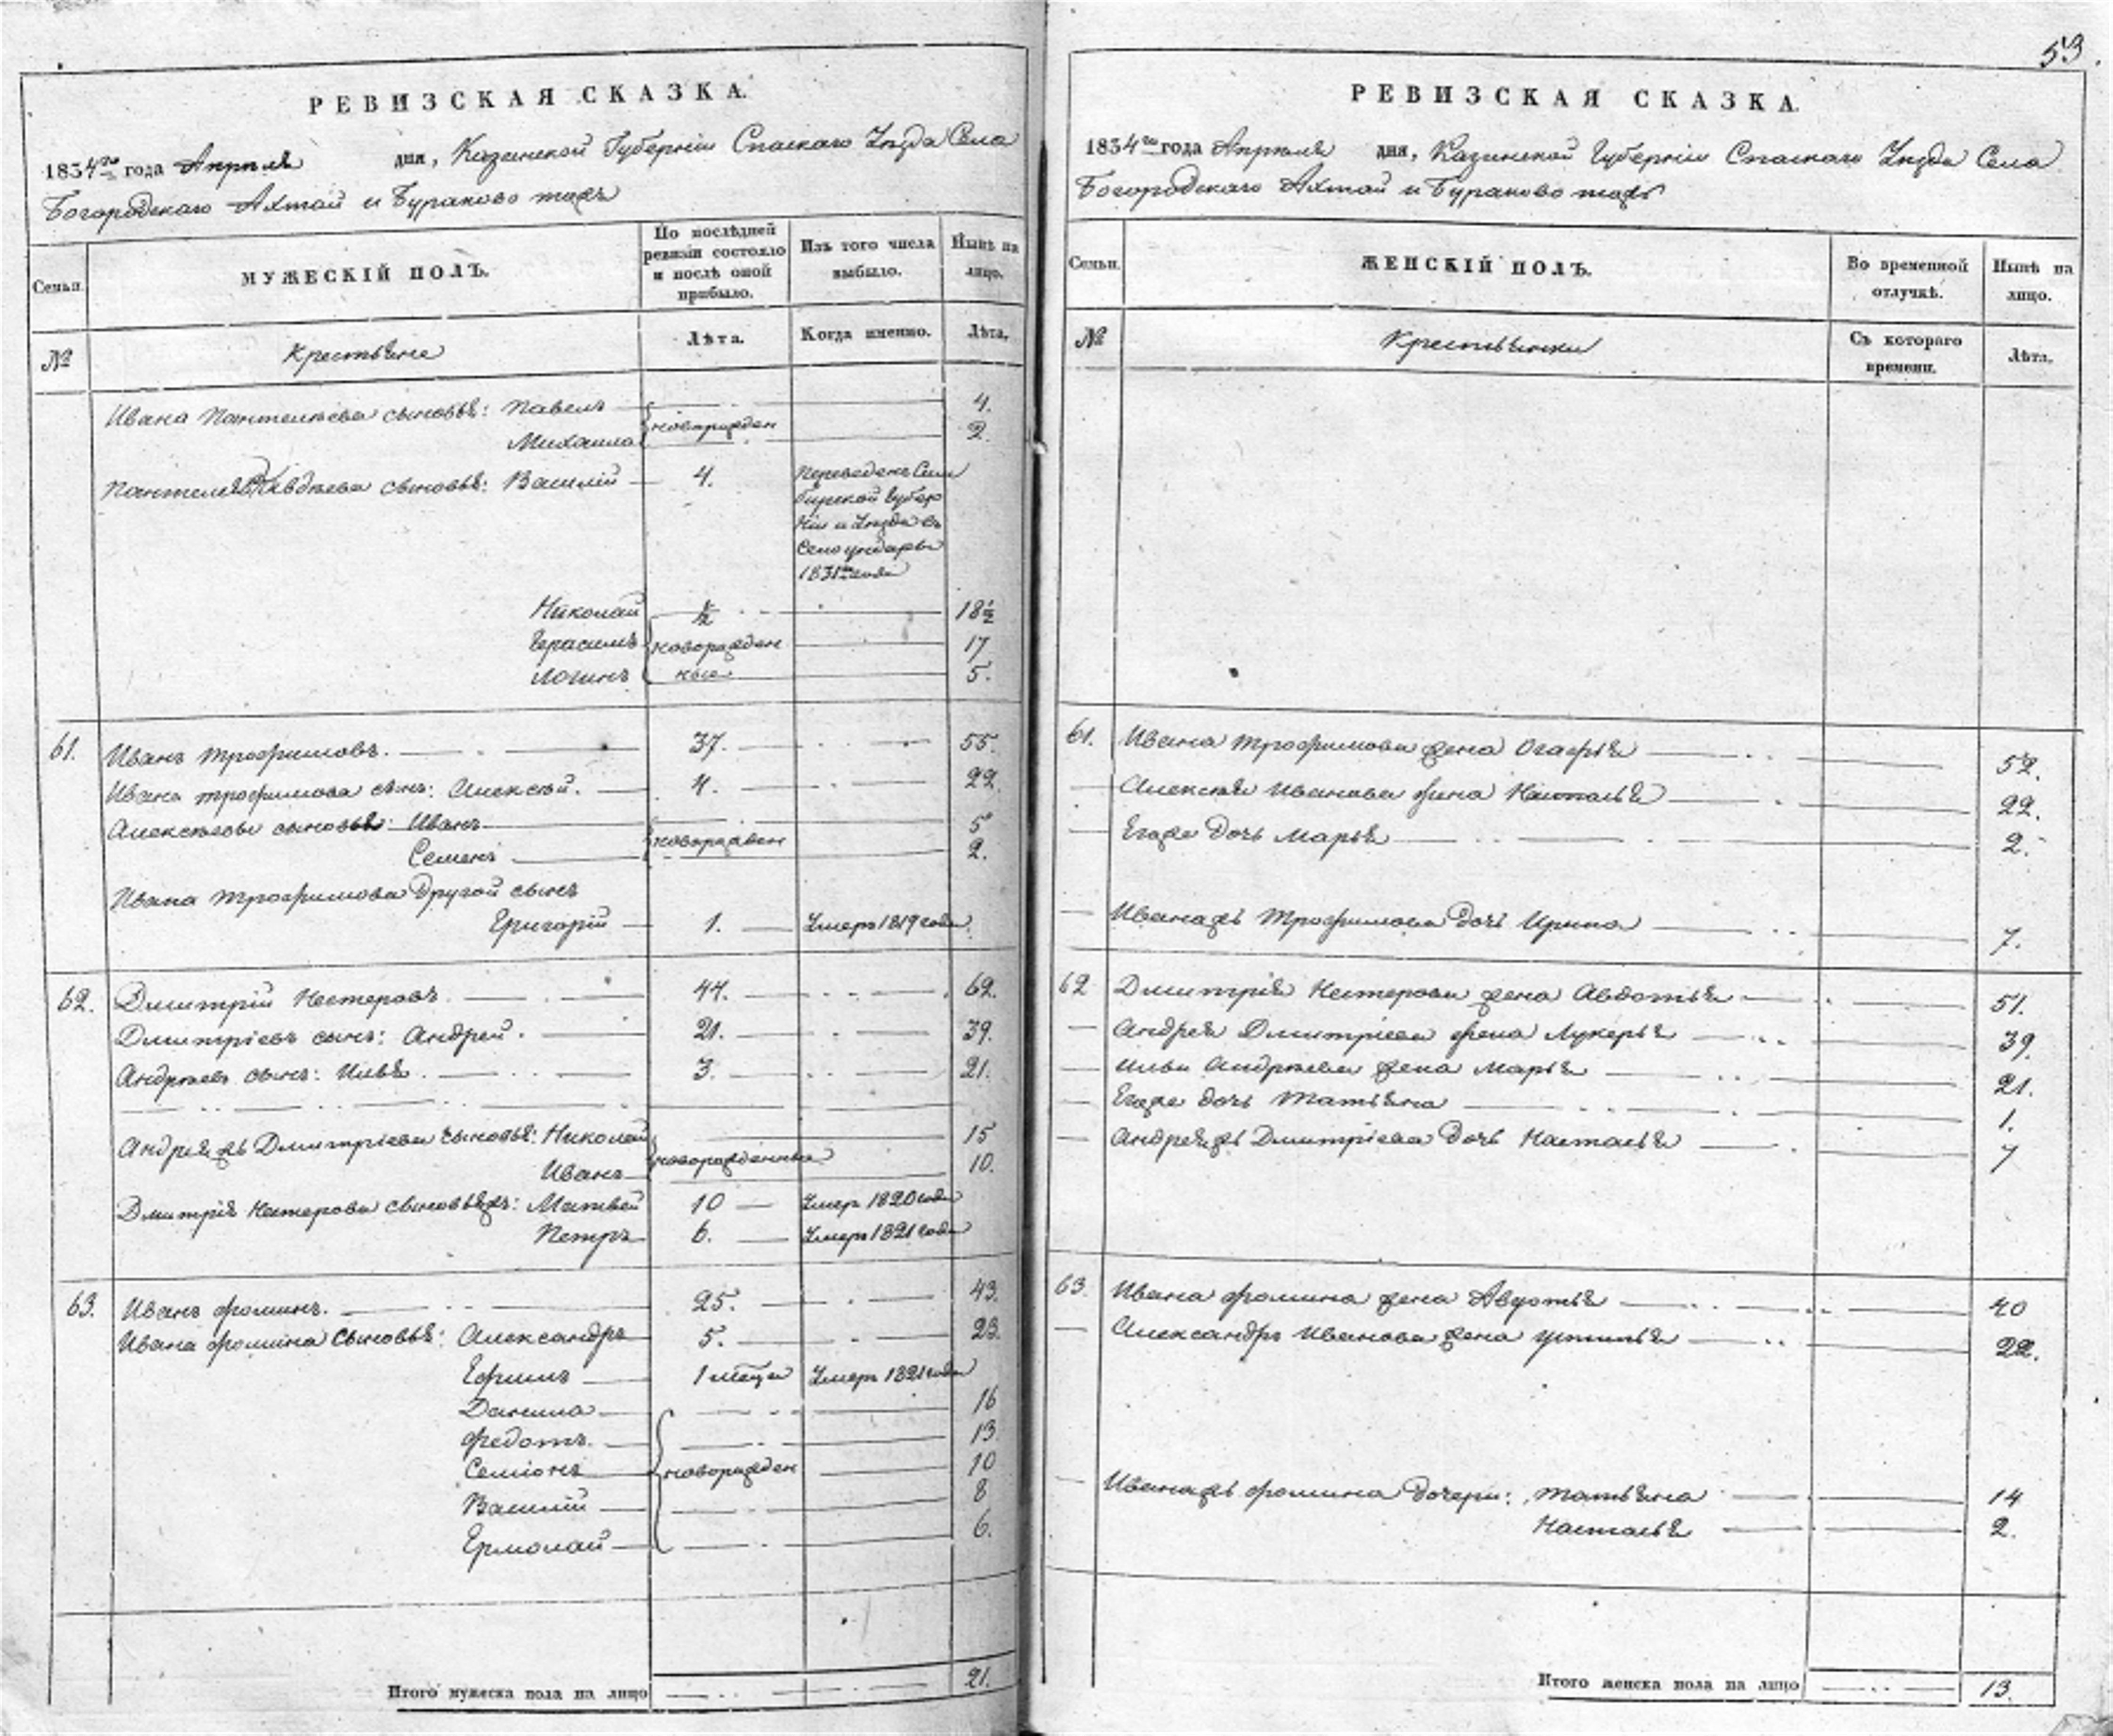 РЕВИЗСКАЯ СКАЗКА.
1834го года Апреля дня, Казанской Губернiи Спаскаго Уезда Села
Богородскаго Ахтай и Бураково тожъ
Семьи.
МУЖЕСКІЙ ПОЛЪ.
По послѣдней ревизіи состояло и послѣ оной прибыло.
Изъ того числа выбыло.
Нынѣ на лицо.
№
Крестьяне
Лѣта.
Когда именно.
Лѣта.
Ивана Пантелеева сыновья: Павелъ 4.
новорожден
Михаила 2.
Пантелея Авдеева сыновья: Василій 4. Переведенъ Сим
бирской Губер
ніи и Уезда въ
Село Ундоры
1831го года
Николай ½ 18½
Герасимъ новорожден 17
Логинъ ные 5.
61. Иванъ Трофимовъ. 37. 55.
Ивана Трофимова сынъ: Алексѣй. 4. 22.
Алексѣевы сыновья: Иванъ 5
новорожден
Семенъ 2.
Ивана Трофимова другой сынъ
Григорій 1. Умеръ 1819 года.
62. Дмитрій Нестеровъ. 44. 62.
Дмитріевъ сынъ: Андрей. 21. 39.
Андреевъ сынъ: Илья. 3. 21.
Андрея жъ Дмитріева сыновья: Николай 15
новорожденные
Иванъ 10.
Дмитрія Нестерова сыновья жъ: Матвей 10 Умеръ 1820 года
Петръ 6. Умеръ 1821 года
63. Иванъ Фоминъ. 25. 43.
Ивана Фомина сыновья: Александръ 5. 23.
Ефимъ 1 месяца Умеръ 1821 года
Данила 16
Федотъ. 13
Семіонъ новорожден 10
Василій 8
Ермолай 6.
Итого мужеска пола на лицо 21.
53.
РЕВИЗСКАЯ СКАЗКА.
1834го года Апреля дня, Казанской Губерніи Спаскаго Уезда Села
Богородскаго Ахтай и Бураково тожъ
Семьи.
ЖЕНСКІЙ ПОЛЪ.
Во временной отлучкѣ.
Нынѣ на лицо.
№
Крестьянки
Съ котораго времени.
Лѣта.
61. Ивана Трофимова жена Огафья 52.
Алексѣя Иванова жена Наталья 22.
Егоже дочь Марья 2.
Ивана жъ Трофимова дочь Ирина 7.
62 Дмитрія Нестерова жена Авдотья 51.
Андрея Дмитріева жена Лукерья 39.
Ильи Андреева жена Марья 21.
Егоже дочь Татьяна 1.
Андрея жъ Дмитріева дочь Настасья 7
63. Ивана Фомина жена Авдотья 40
Александръ Иванова жена Устинья 22.
Ивана жъ Фомина дочери: Татьяна 14
Настасья 2.
Итого женска пола на лицо 13.